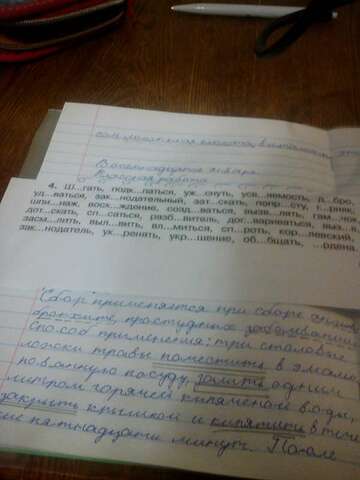 Восемнадцатое января
Классная работа
4. Ш...гать, подк...паться, уж...снуть, усв...яемость, д...бро,
уд...ваться, зак...нодательный, зат...скать, попр...сту, г...рняк,
шпи...наж, восх...ждение, созд...ваться, вызв...лять, гам...
дот...скать, сп...саться, разб...витель, дог...вариваться, выз...
засм...лить, выл...вить, вл...миться, сп...роть, кор...левский,
зак...нодатель, ук...ренять, укр...шение, об...бщать, ...рдена
Сбор применяется при сборе
бронхите, простудных заболеваниях
Способ применения: три столовые
ложки травы поместить в эмали
рованную посуду, залить одним
литром горячей кипяченой воды,
закрыть крышкой и кипятить в тече
ние пятнадцати минут. После